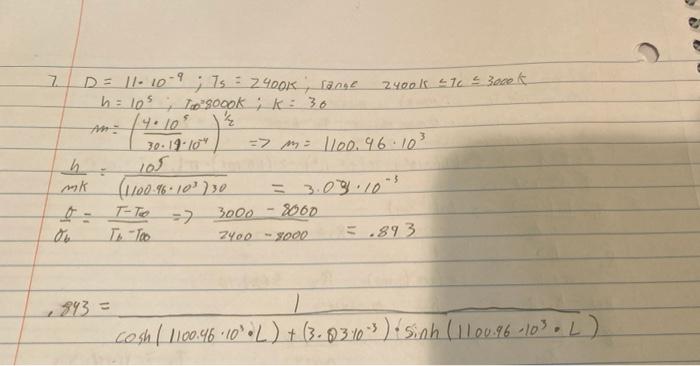 7. D = 11·10⁻⁹ ; Ts = 2400K ; range 2400K ≤ Tc ≤ 3000K
h = 10⁵ ; T∞ = 8000K ; K = 30
m = (4·10⁵ / 30·11·10⁻⁹)^½ => m = 1100.96·10³
h/mK = 10⁵ / (1100.96·10³)30 = 3.03·10⁻³
θ/θb = T-T∞ / Tb-T∞ => 3000-8000 / 2400-8000 = .893
.893 = 1 / cosh(1100.96·10³·L) + (3.03·10⁻³)·sinh(1100.96·10³·L)